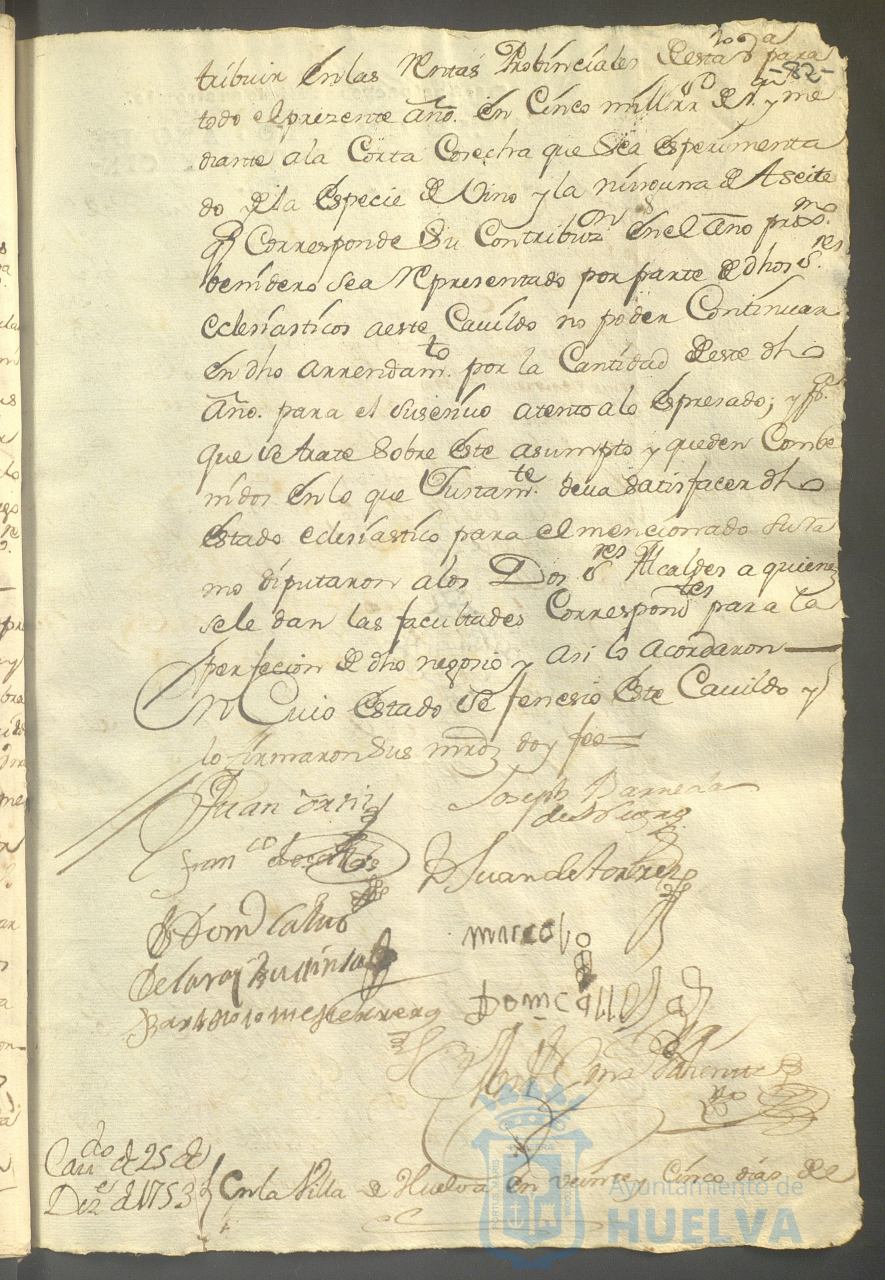 -82-
tribuir en las Rentas Provinciales desta para
todo el prezente año. en Cinco mill rr.s de v.n y me
diante ala Corta Cosecha que Sea esperimenta
do de la Especie de Vino y la ninguna de Aseite
q.e Corresponde Su Contribuz.on en el año prox.mo
benidero sea Representado por parte de dhos S.res
Eclesiasticos aeste Cavildo no poder Continuar
en dho arrendam.to por la Cantidad deste dho
año. para el susesivo atento alo espresado; y p.a
que se trate Sobre este asumpto y queden Combe
nidos en lo que Justam.te deva satisfacer dho
estado eclesiastico para el mencionado
mo diputaron alos Dos S.res Alcaldes a quienes
sele dan las facultades Correspond.tes para la
perfecion de dho negosio y asi lo acordaron
En Cuio estado se fenesio este Cavildo y
lo firmaron Sus mrds doy fee=
Juan Ortiz
Joseph Barreda
Fran.co
D Juan de Torres
Dom.o Calvo
de la
marcos
Bartholome Herrero
Dom
Cav.do de 25 de
Diz.e de 1753
En la Villa de Huelva en veinte y Cinco dias de
Ayuntamiento de
HUELVA